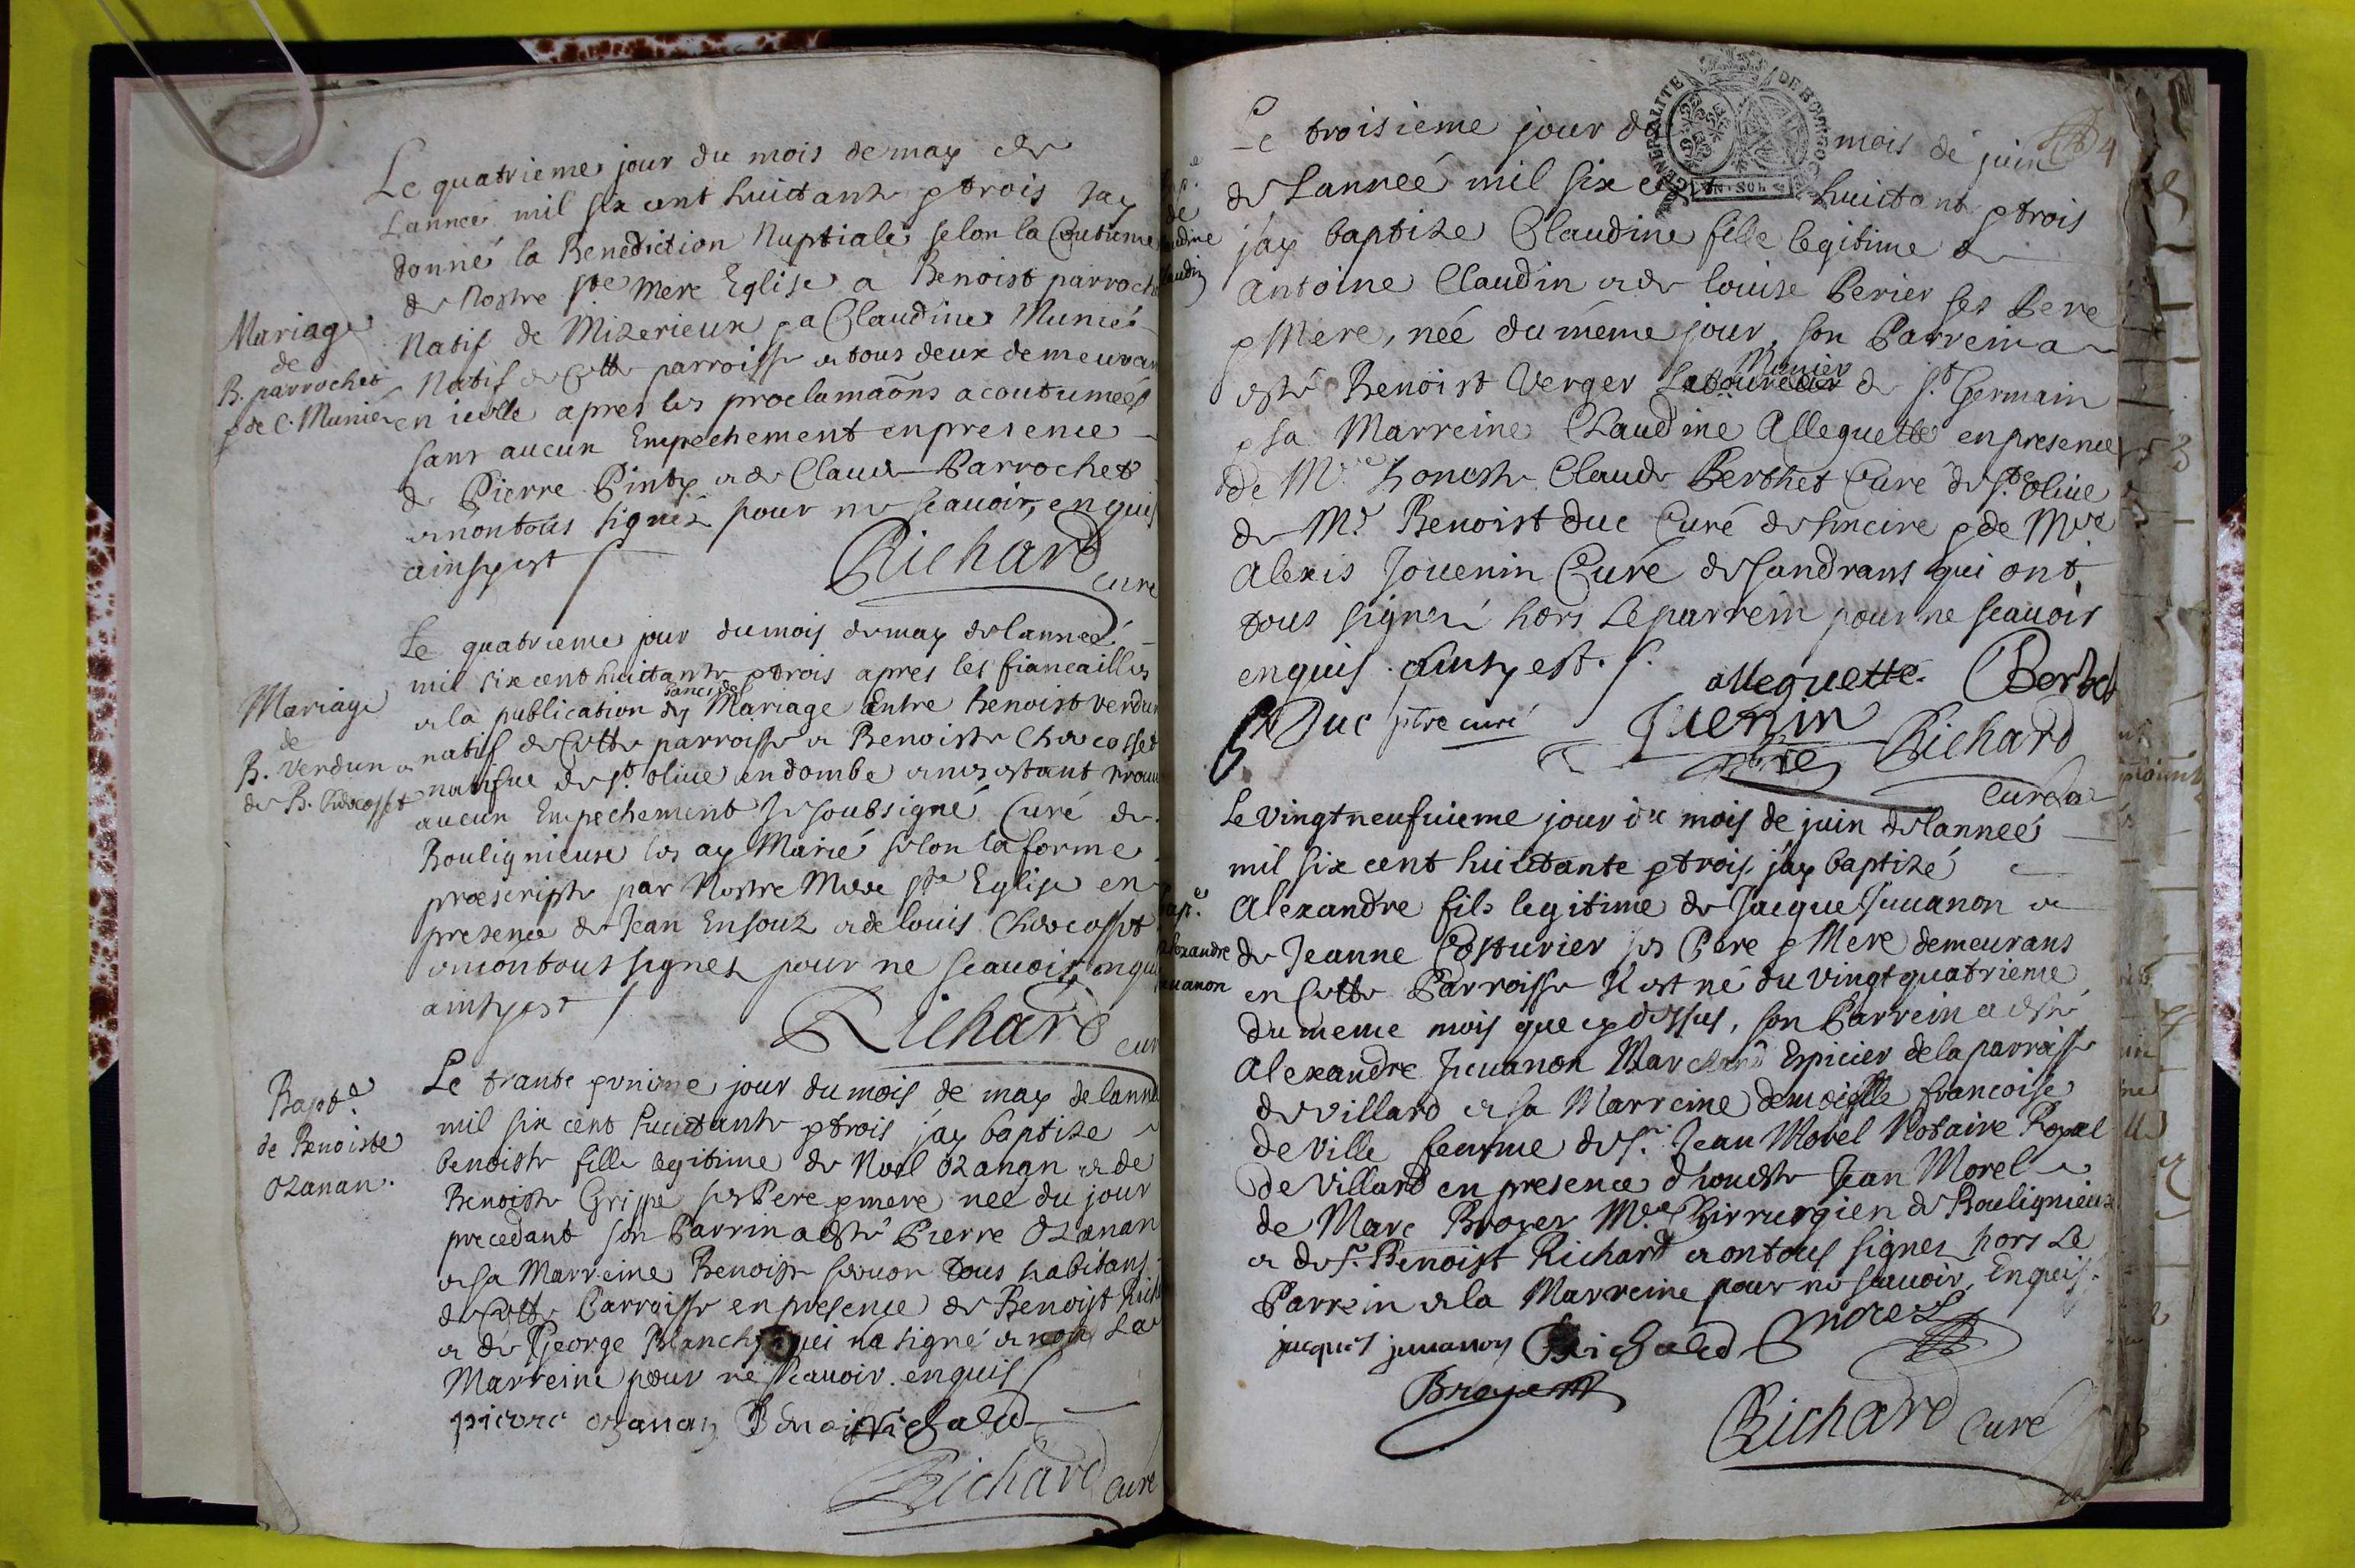 Le quatrieme jour du mois de may de
Lannee mil six cent huictante & trois Jay
donné la Benediction Nuptiale selon la Coutume
de Nostre ste Mere Eglise a Benoist parroch
Mariage
de
B. parrochet
& de C. Munier
Natif de Mizerieux & a Claudine Munier
Natif de Cette parroisse & tous deux demeuran
en icelle apres les proclamaõns acoutumées
sans aucun Empechement en presence
de Pierre Pinty & de Claude Parrochet
& nontous signéz pour ne scauoir, enquis
ainsy est
Richard
curé
Le quatrieme jour dumois de may de lannee
mil six cent huictante & trois apres les fiancailles
& la publication des bancs de Mariage Entre Benoist Verdun
Mariage
de
B. Verdun &
de B.
natif de Cette parroisse & Benoiste
natifue de st. oliue en dombe & ne estant
aucun Empechement Je soubsigné Curé de
Boulignieux les ay Marié selon la forme
prescripte par Nostre Mere ste Eglise en
presence de Jean Ensouz & de louis
& nontous signes pour ne scauoir, enqui
ainsy est
Richard
cur
Bapt.e
de Benoiste
Ozanan.
Le trante & unieme jour du mois de may de lanne
mil six cent huictante & trois j'ay baptize
benoiste fille legitime de Noel Ozanan & de
Benoiste Grippe ses Pere & mere née du jour
precedant son Parrin a esté Pierre Ozanan
& sa Marreine Benoiste tous habitans
de Cette Parroisse en presence de Benoist Rich
& de George Blanch qui na signé & non La
Marreine pour ne scauoir. enquis
pierre ozanan Benoist Richard
Richard Curé
GENERALITE DE BOURGOG
UN SOL
4
Le troisieme jour du mois de juin
de Lanneé mil six cent huictante & trois
jay baptize Claudine fille legitime de
Antoine Claudin & de louise Perier ses Pere
& Mere, neé du méme jour, son Parrein a
esté Benoist Verger Munier de st. Germain
& sa Marreine Claudine Alleguette en presence
de Mre. honeste Claude Berthet Curé de ste. oliue
de Mr. Benoist duc Curé de & de Mre
Alexis Jouenin Curé de Sandrans qui ont
tous signéz hors Le parrein pour ne scauoir
enquis. ainsy est.
alleguette. Berthet
Duc ptre curé
Richard
Curé
Le Vingt neufuieme jour du mois de juin de lanneé
mil six cent huictante & trois, jay baptizé
Bap.t
Alexandre
Juuanon
Alexandre fils legitime de Jacque Juuanon &
de Jeanne Costurier ses Pere & Mere demeurans
en Cette Parroisse Il est né du Vingt quatrieme
du meme mois que cy dessus, son Parrein a esté
Alexandre Juuanon Marchand Epicier de la parroisse
de Villard & sa Marreine demoiselle francoise
de Ville femme de sr. Jean Morel Notaire Royal
de Villard en presence d'honeste Jean Morel
de Marc Broyer Mre Chirrurgien de Boulignieux
& de sr. Benoist Richard & ont tous signez hors Le
Parrein & la Marreine pour ne scauoir, Enquis.
jacques juuanon Richard Morel
Broyer
Richard Curé